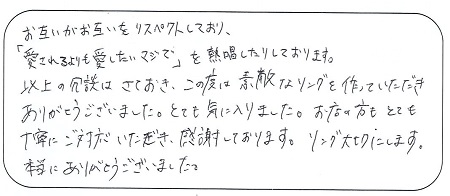 お互いがお互いをリスペクトしており、
「愛されるよりも愛したいマジで」を熱唱したりしております。
以上の冗談はさておき、この度は素敵なリングを作っていただき
ありがとうございました。とても気に入りました。お店の方もとても
丁寧にご対応いただき、感謝しております。リング大切にします。
本当にありがとうございました。